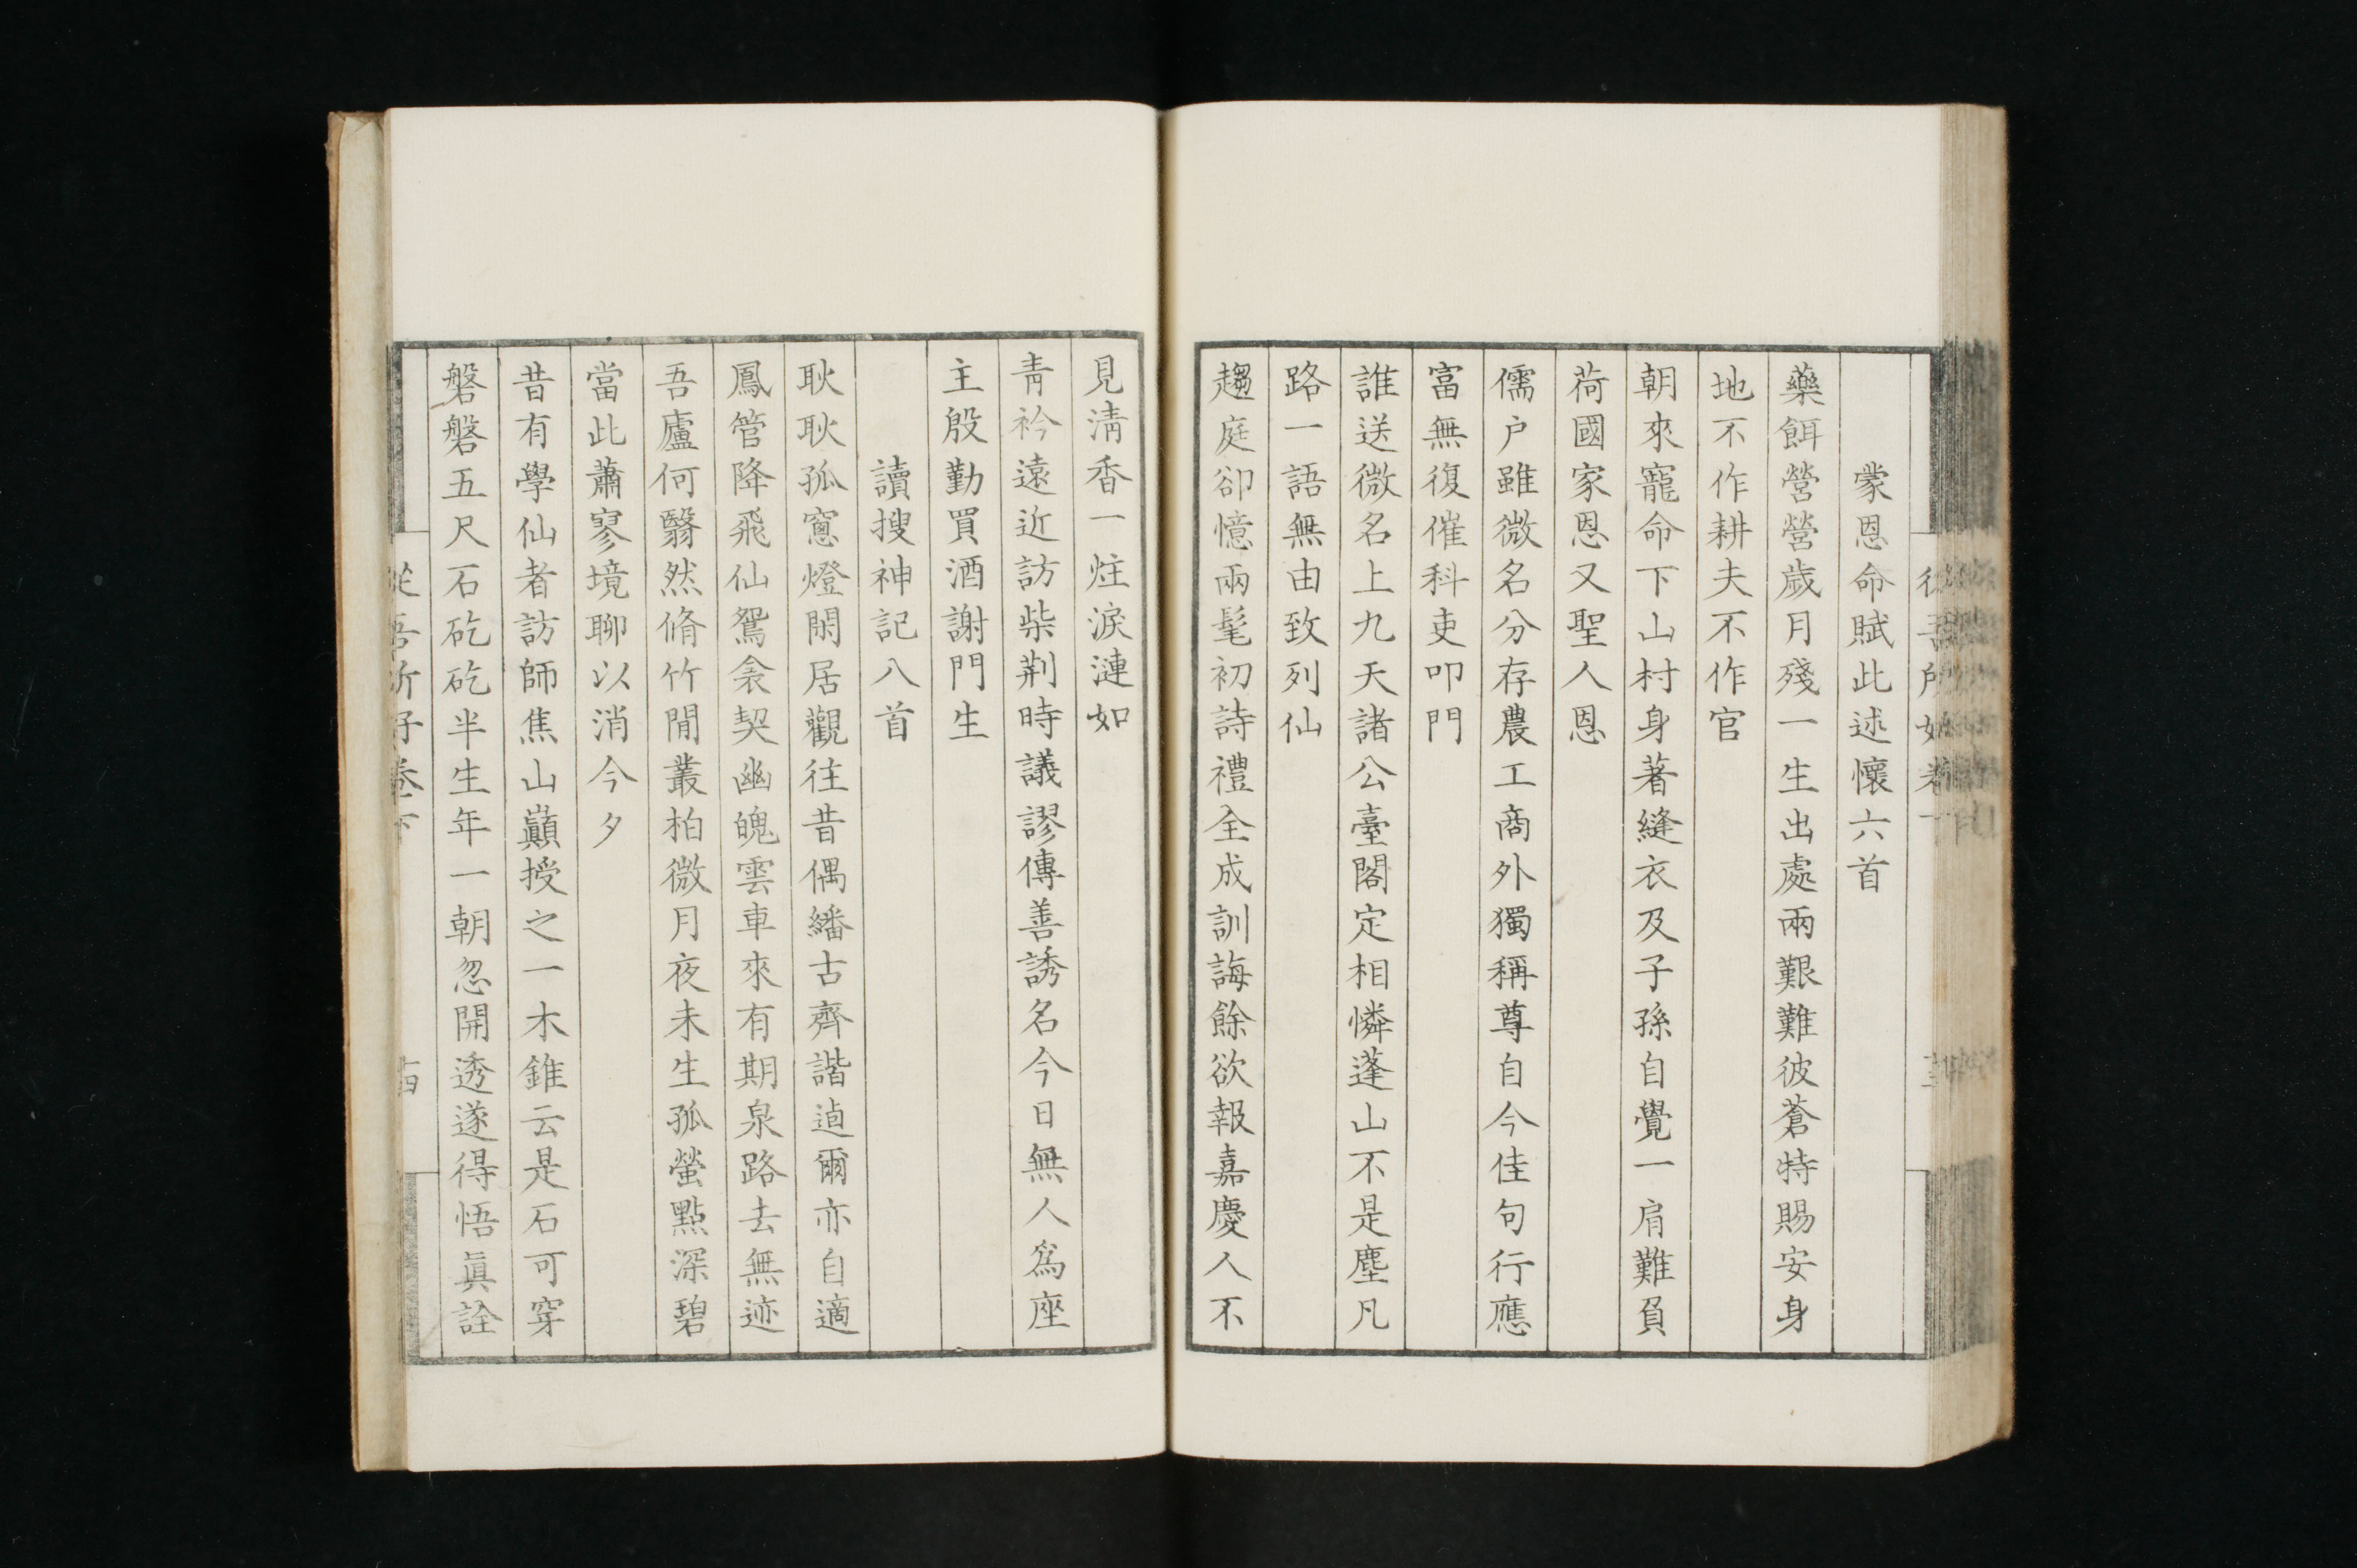 蒙恩命賦此述懷六首
藥餌營營歲月殘一生出處兩艱難彼蒼特賜安身
地不作耕夫不作官
朝來寵命下山村身著縫衣及子孫自覺一肩難負
荷國家恩又聖人恩
儒户雖微名分存農工商外獨稱尊自今佳句行應
富無復催科吏叩門
誰送微名上九天諸公臺閣定相憐蓬山不是塵凡
路一語無由致列仙
趨庭卻憶兩髦初詩禮全成訓誨餘欲報嘉慶人不
見淸香一炷淚漣如
青衿遠近訪柴荆時議謬傳善誘名今日無人爲座
主殷勤買酒謝門生
讀搜神記八首
耿耿孤窻燈閑居觀往昔偶繙古齊諧逌爾亦自適
鳳管降飛仙鴛衾契幽魄雲車來有期泉路去無迹
吾廬何翳然脩竹間叢柏微月夜未生孤螢點深碧
當此蕭寥境聊以消今夕
昔有學仙者訪師焦山巓授之一木錐云是石可穿
磐磐五尺石矻矻半生年一朝忽開透遂得悟眞詮
從吾所好卷下
十四